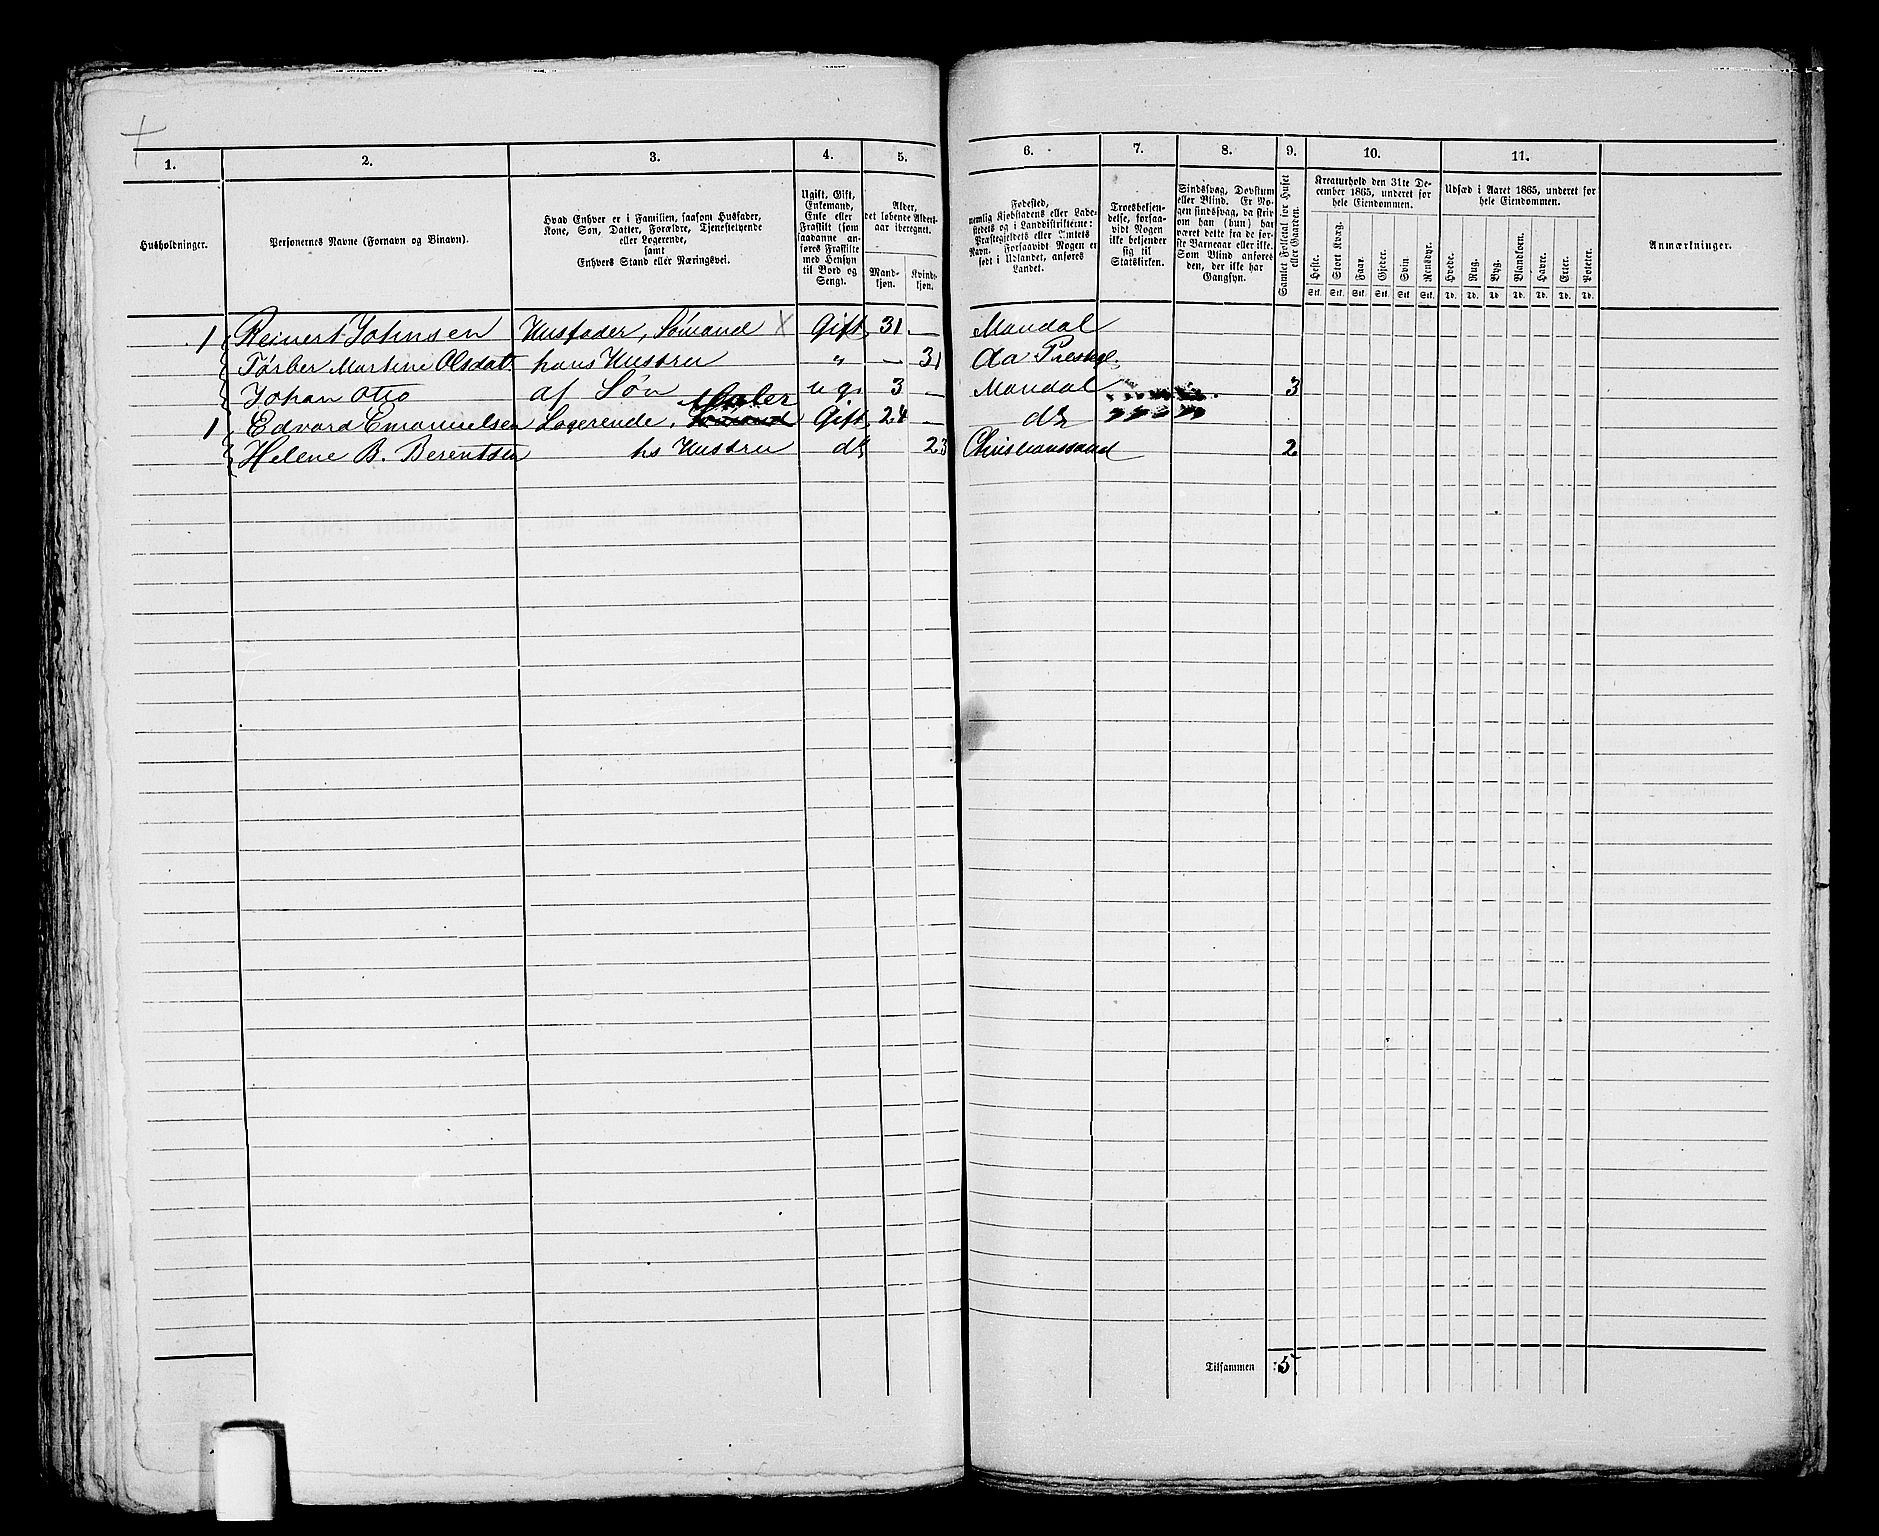 1. 2. 3. 4. 5. 6. 7. 8. 9. 10. 11.
Husholdninger.
Personernes Navne (Fornavn og Binavn).
Hvad Enhver er i Familien, saasom Husfader,
Kone, Søn, Datter, Forældre, Tjenestetyende
eller Logerende,
samt
Enhvers Stand eller Næringsvei.
Ugift, Gift,
Enkemand,
Enke eller
Fraskilt (som
saadanne an-
føres Fraskilte
med Hensyn
til Bord og
Seng).
Alder,
det løbende Alders-
aar iberegnet.
Mand-
kjøn.
Kvinde-
kjøn.
Fødested,
nemlig Kjøbstadens eller Lade-
stedets og i Landdistrikterne:
Præstegjeldets eller Sognets
Navn. Forsaavidt Nogen er
født i Udlandet, anføres
Landet.
Troesbekjen-
delse, forsaa-
vidt Nogen
ikke bekjender
sig til
Statskirken.
Sindssvag, Døvstum
eller Blind. Er No-
gen sindssvag, da skriv
om han (hun) har
været dette fra de før-
ste Barneaar eller ikke.
Som Blind anføres
den, der ikke har
Gangsyn.
Samlet Folketal for Huset
eller Gaarden.
Kreaturhold den 31te De-
cember 1865, underet for
hele Eiendommen.
Heste. Stort Kvæg. Faar. Gjeder. Svin. Rensdyr.
Stk. Stk. Stk. Stk. Stk. Stk.
Udsæd i Aaret 1865, underet for
hele Eiendommen.
Hvede. Rug. Byg. Blandkorn. Havre. Erter. Poteter.
Td. Td. Td. Td. Td. Td. Td.
Anmærkninger.
1 Reinert Johnsen Husfader, Sømand x Gift 31 — Mandal
Tørber Martine Olsdat. hans Hustru " — 31 do Prestegl.
Johan Otto af Søn ug. 3 — Mandal 3
Maler
1 Edvard Emanuelsen Logerende, Gift 24 — do
Helene B. Berentsen hs Hustru do 23 Christianssand 2
Tilsammen 5